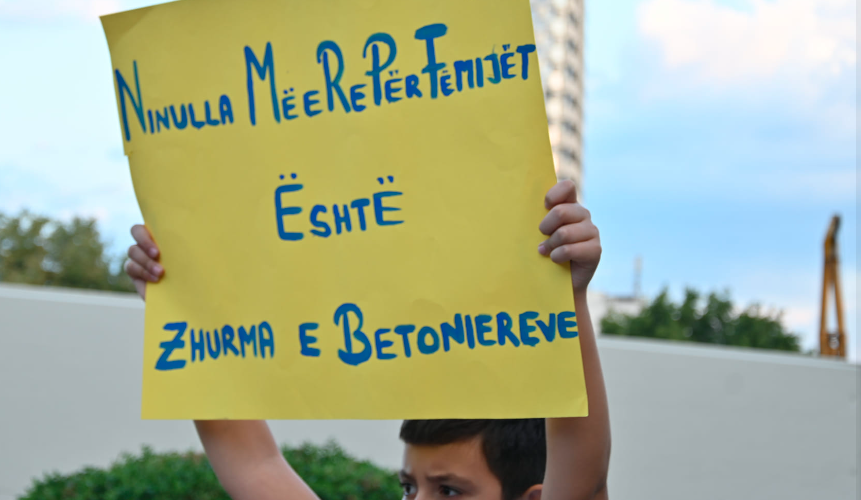 NINULLA MË E RE PËR FËMIJËT
ËSHTË
ZHURMA E BETONIEREVE